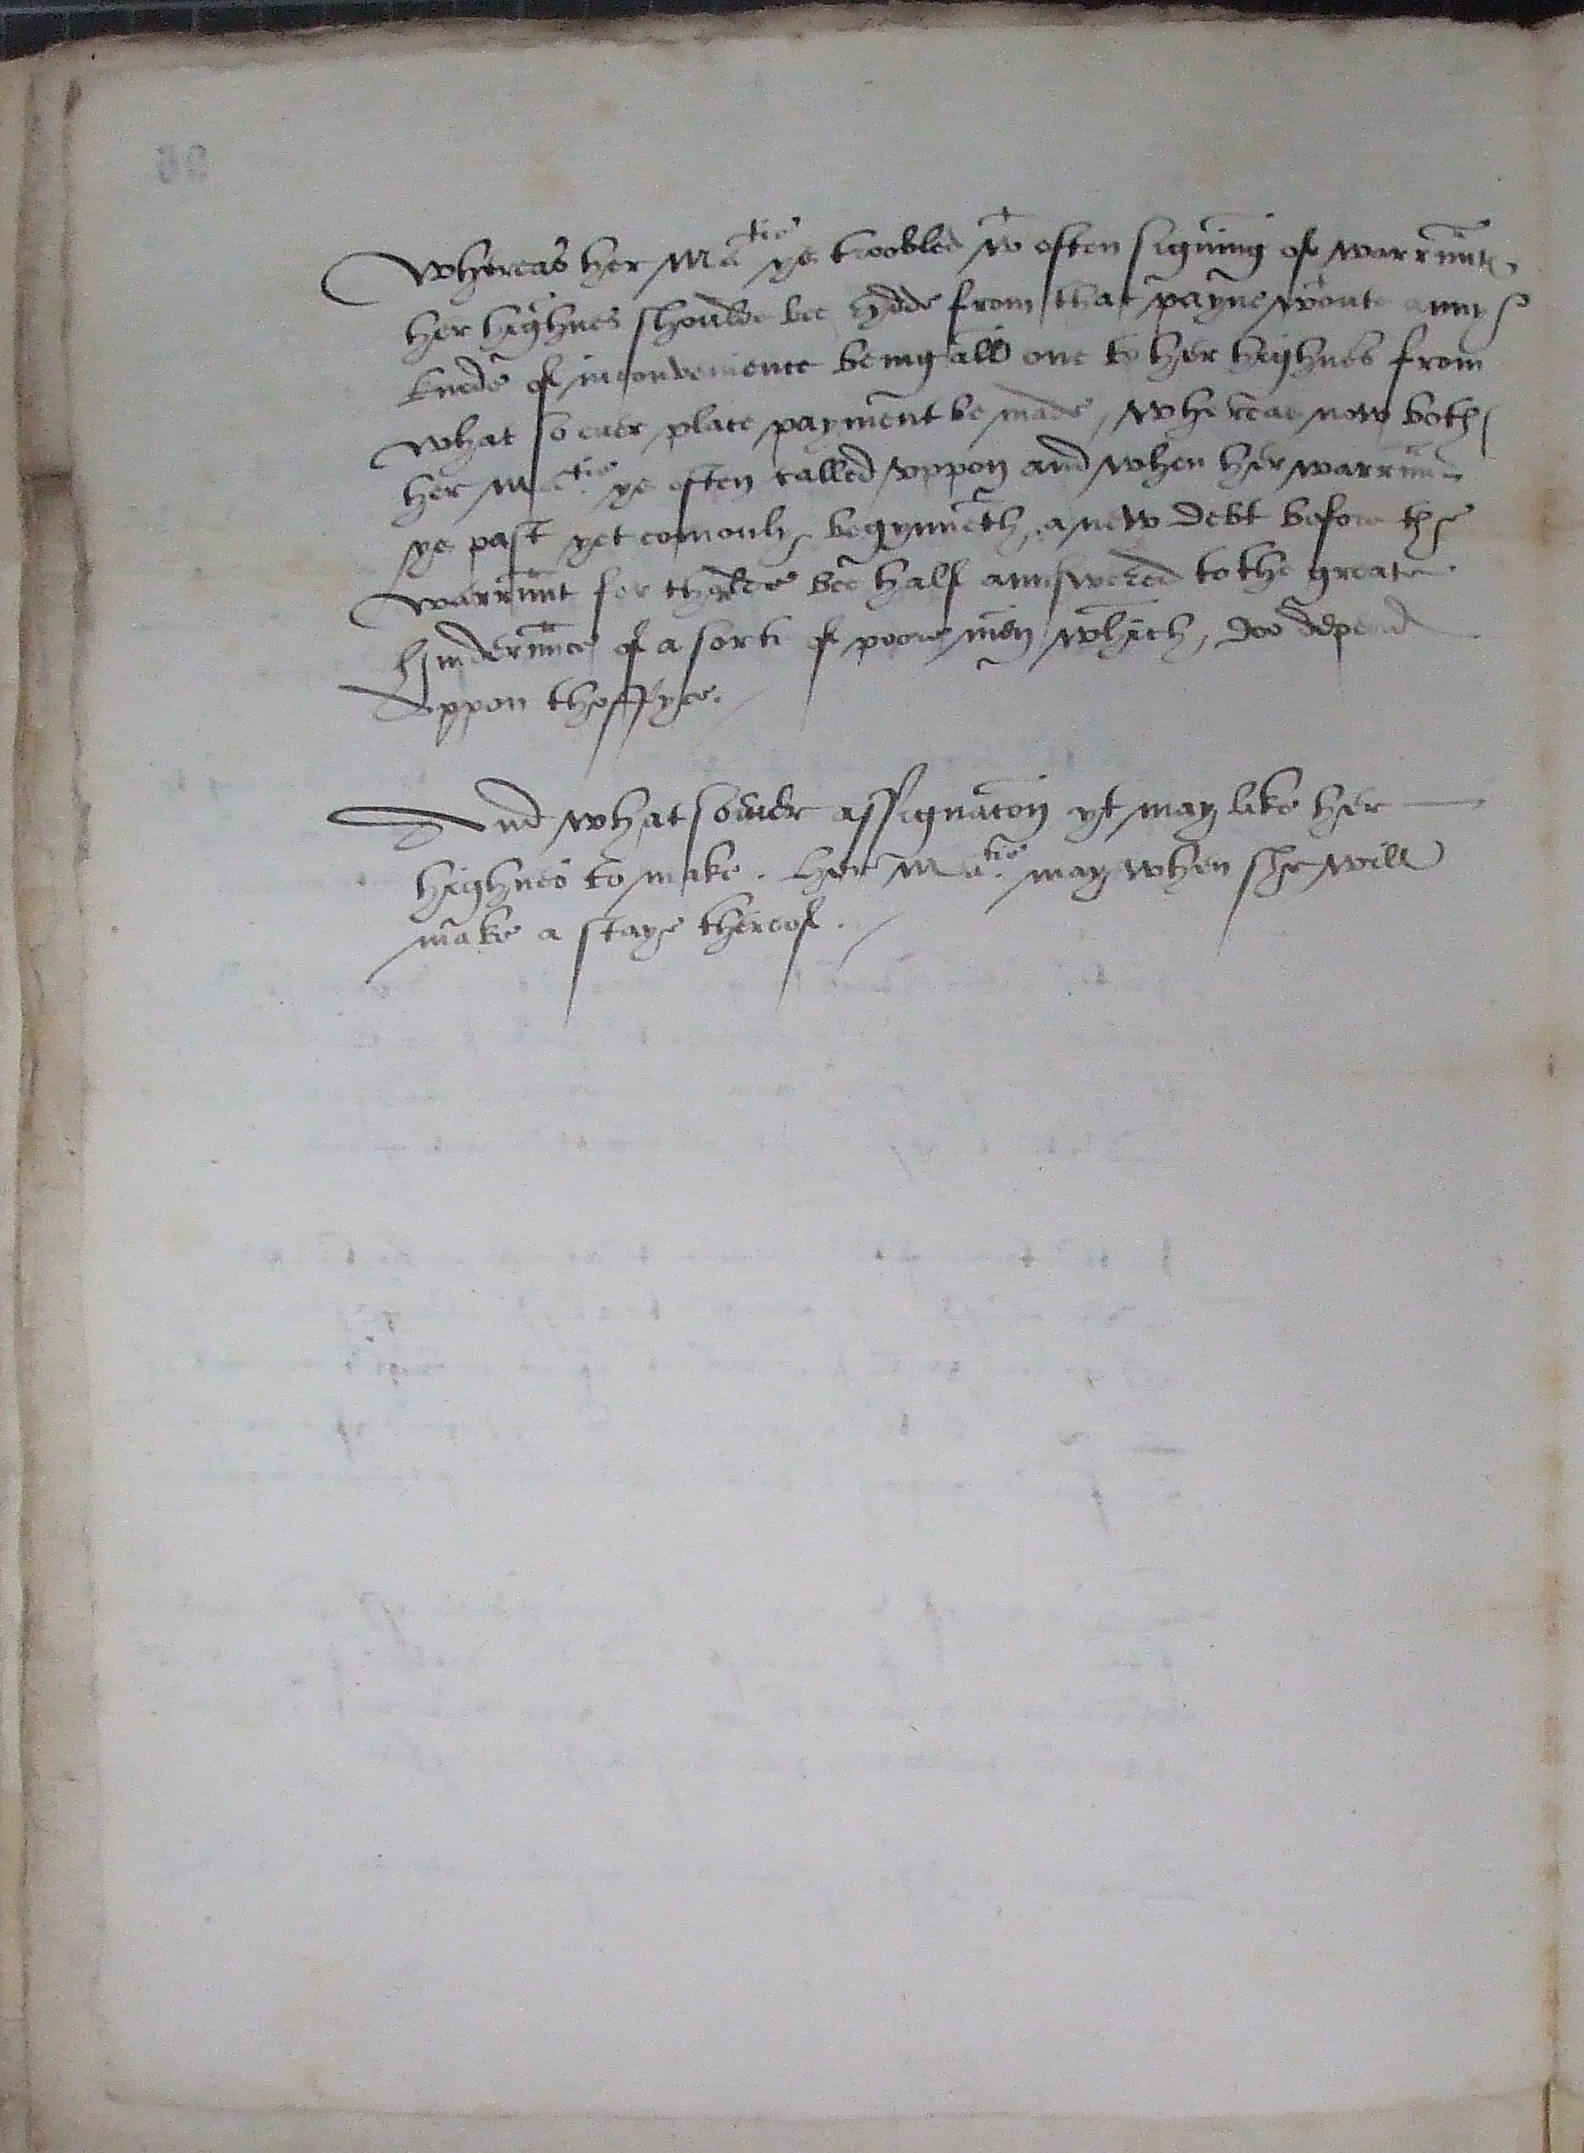 Whereas her Ma^tie ys troobled w^t often signing of warraunts
her highnes shoulde bee rydde from that payne w^tout anny
kinde of inconvenience being all one to her highnes from
what so ever place payment be made, whereas now both
her Ma^tie ys often called vppon and when her warraunt
ys past yet comonly begynneth a new debt before the
warraunt for tholde bee half aunswered to the greate
hinderaunce of a sorte of poore men which doo depend
vppon thoffyce.
And what soever assignacon yt may like her
highnes to make. her Ma^tie may when she will
make a staye thereof.